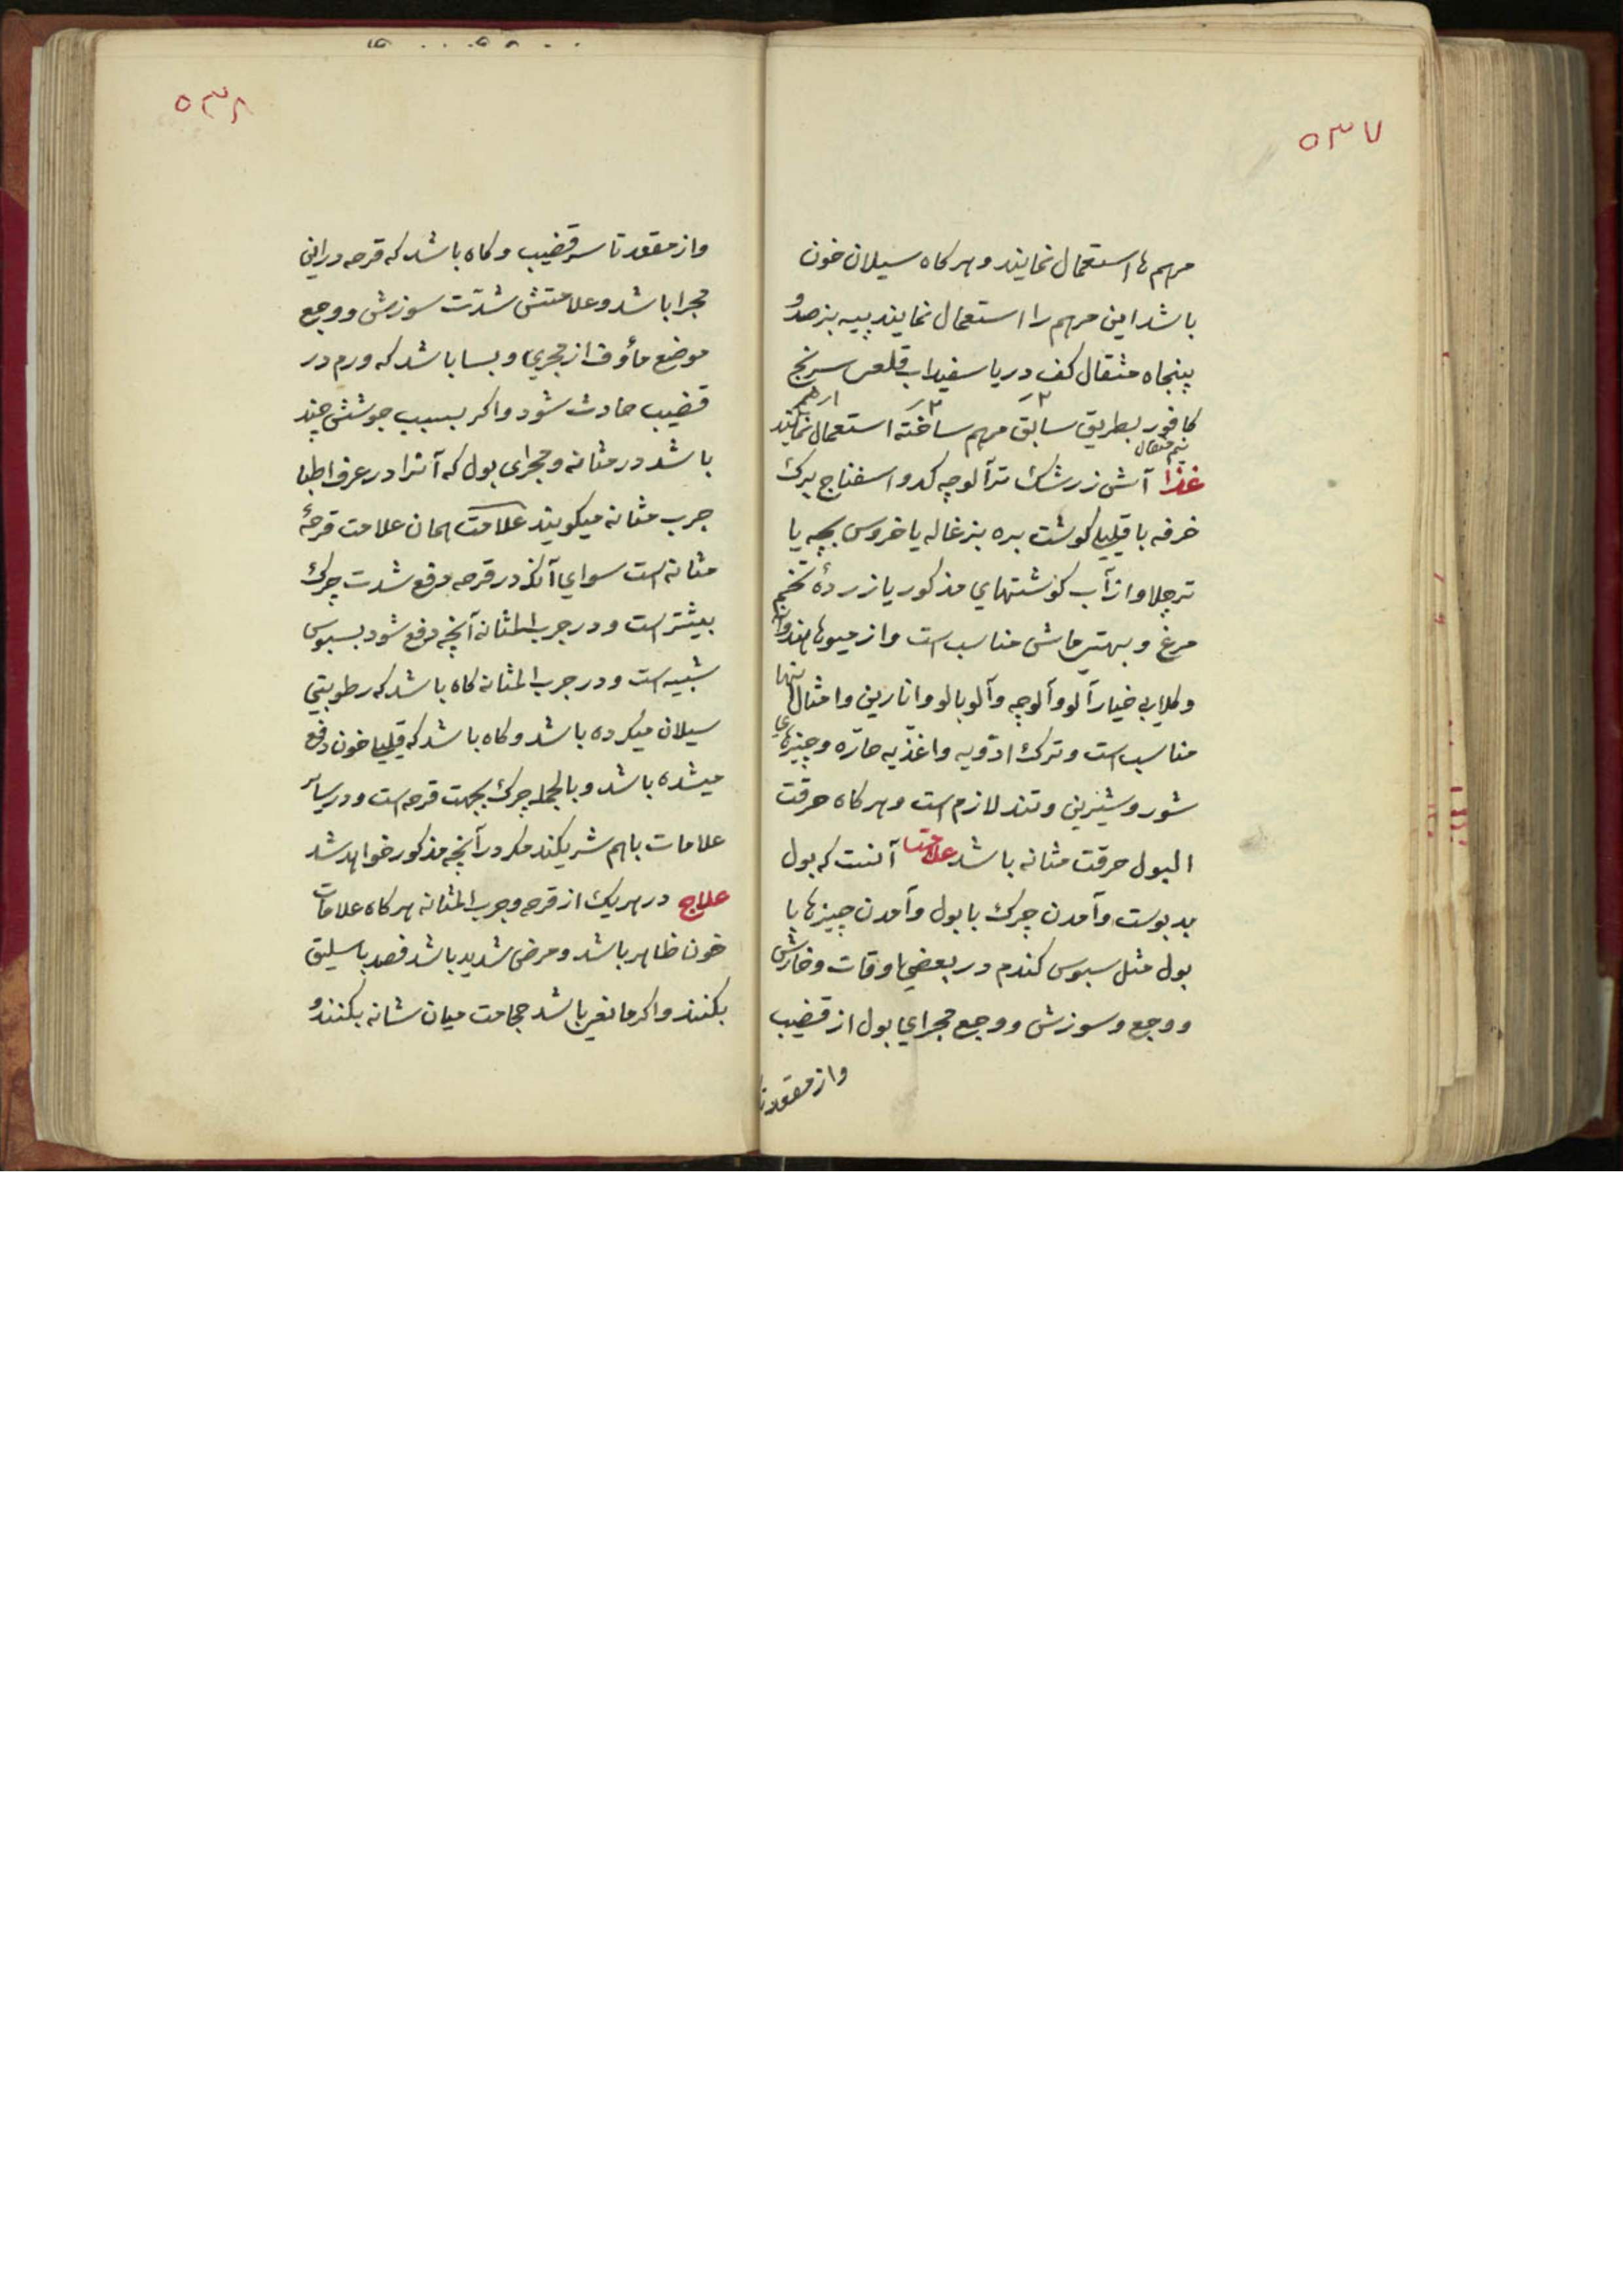 ٥٣٧
مرهم ها استعمال نمایند و هر کاه سیلان خون
باشد این مرهم را استعمال نمایند پیه بز صد و
پنجاه مثقال کف دریا سفیداب قلعی سرنج
کافور بطریق سابق مرهم ساخته استعمال نمایند
نیم مثقال
غذا آش زرشک تر آلوچه کدو اسفناج برک
خرفه با قلیلی کوشت بره بزغاله یا خروس بچه یا
تر چلاو از آب کوشتهای مذکور یا زردهٔ تخم
مرغ و بهترین ماش مناسب است و از میوها هندوانه
و کلابی خیار آلو و آلوچه و آلوبالو و انارین و امثال اینها
مناسب است و ترک ادویه و اغذیه حارّه و چیزهای
شور و شیرین و تند لازم است و هر کاه حرقت
البول حرقت مثانه باشد علامت آنست که بول
بد بوست و آمدن چرک با بول و آمدن چیزها با
بول مثل سبوس کندم در بعضی اوقات و خارش
و وجع و سوزش و وجع مجرای بول از قضیب
و از مقعد تا
٥٣٨
و از مقعد تا سر قضیب و کاه باشد که قرحه در این
مجرا باشد و علامتش شدّت سوزش و وجع
موضع مأوف از مجری و بسا باشد که ورم در
قضیب حادث شود و اکر بسبب جوشش چند
باشد در مثانه و مجرای بول که آنرا در عرف اطبا
جرب مثانه میکویند علامت همان علامت قرحهٔ
مثانه است سوای آنکه در قرحه دفع شدت چرک
بیشتر است و در جرب المثانه آنچه دفع شود بسبوس
شبیه است و در جرب المثانه کاه باشد که رطوبتی
سیلان میکرده باشد و کاه باشد که قلیلی خون دفع
میشده باشد و بالجمله چرک بجهت قرحه است و در سایر
علامات باهم شریکند مکر در آنچه مذکور خواهد شد
علاج در هر یک از قرحه و جرب المثانه هر کاه علامات
خون ظاهر باشد و مرض شدید باشد فصد باسلیق
بکنند و اکر مانعی باشد حجامت میان شانه بکنند و